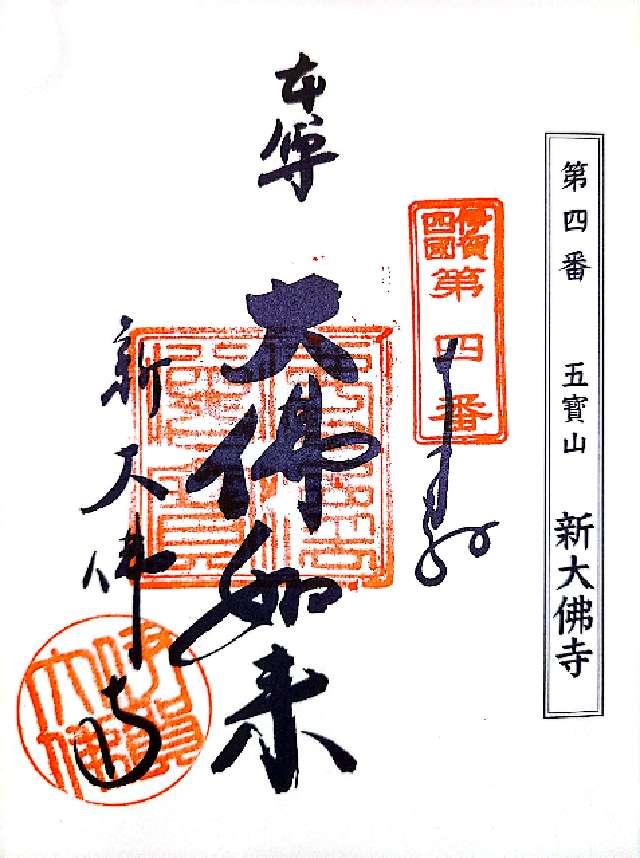 第四番 五寶山 新大佛寺
伊賀
四國
第四番
本尊
大佛如来
新大佛寺
伊賀
大佛